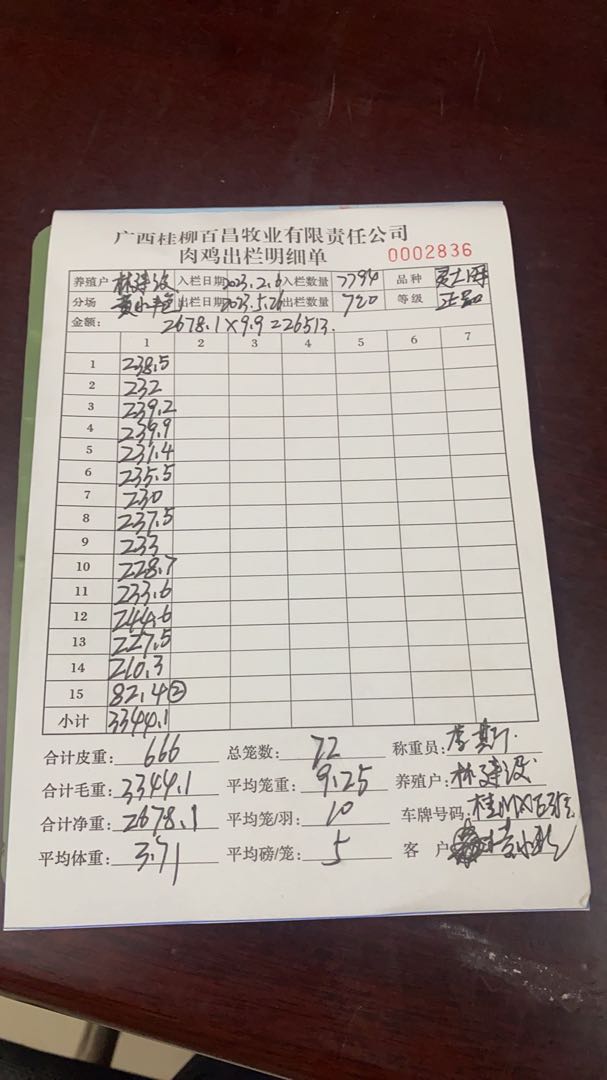 广西桂柳百昌牧业有限责任公司
肉鸡出栏明细单 0002836
养殖户 林建波 入栏日期 2023.2.6 入栏数量 7794 品种
分场 黄小艳 出栏日期 2023.5.26 出栏数量 720 等级 正品
金额: 2678.1×9.9=26513.
1 2 3 4 5 6 7
1 238.5
2 232
3 239.2
4 239.9
5 231.4
6 235.5
7 230
8 237.5
9 233
10 228.7
11 233.6
12 244.6
13 227.5
14 210.3
15 82.4②
小计 3344.1
合计皮重: 666 总笼数: 72 称重员: 李斯
合计毛重: 3344.1 平均笼重: 9.25 养殖户: 林建波
合计净重: 2678.1 平均笼/羽: 10 车牌号码:
平均体重: 3.71 平均磅/笼: 5 客户 黄小艳